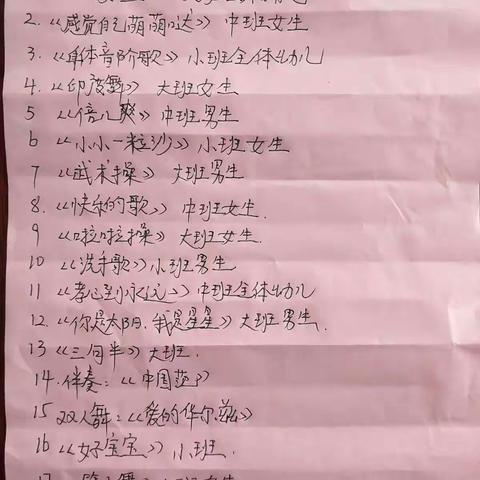 2. 《感觉自己萌萌哒》 中班女生
3. 《身体音阶歌》 小班全体幼儿
4. 《印度舞》 大班女生
5 《倍儿爽》 中班男生
6 《小小一粒沙》 小班女生
7 《武术操》 大班男生
8. 《快乐的歌》 中班女生.
9 《啦啦操》 大班女生.
10 《洗手歌》 小班男生
11 《孝心到永远》 中班全体幼儿
12. 《你是太阳.我是星星》 大班男生.
13 《三句半》 大班.
14. 伴奏:《中国范》
15 双人舞:《爱的华尔兹》
16 《女子宝宝》 小班.